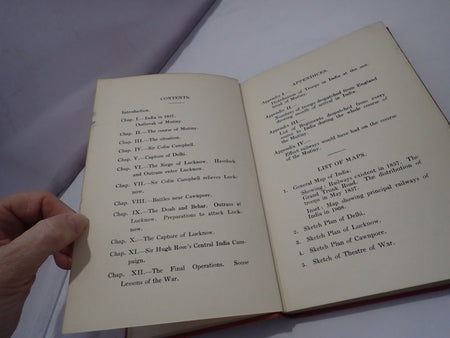 CONTENTS.
Introduction.
Chap. I.—India in 1857.
Outbreak of Mutiny.
Chap. II.—The course of Mutiny.
Chap. III.—The situation.
Chap. IV.—Sir Colin Campbell.
Chap. V.—Capture of Delhi.
Chap. VI.—The Siege of Lucknow. Havelock
and Outram enter Lucknow.
Chap. VII.—Sir Colin Campbell relieves Luck-
now.
Chap. VIII.—Battles near Cawnpore.
Chap. IX.—The Doab and Behar. Outram at
Lucknow. Preparations to attack Luck-
now.
Chap. X.—The Capture of Lucknow.
Chap. XI.—Sir Hugh Rose's Central India Cam-
paign.
Chap. XII.—The Final Operations. Some
Lessons of the War.
APPENDICES.
Appendix I.
Distribution of Troops in India at the out-
break of Mutiny.
Appendix II.
Number of troops despatched from England
because of the revolt in India.
Appendix III.
List of Regiments despatched from every
source to India during the whole course of
the Mutiny.
Appendix IV.
Effect railways would have had on the course
of the Mutiny.
LIST OF MAPS.
1. General Map of India.
Showing: Railways existent in 1857. The
Grand Trunk Road. The distribution of
troops in May 1857.
Inset: Map showing principal railways of
India in 1908.
2. Sketch Plan of Delhi.
3. Sketch Plan of Lucknow.
4. Sketch Plan of Cawnpore.
5. Sketch of Theatre of War.